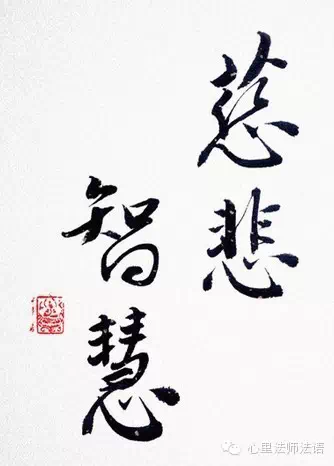 慈悲
智慧
心里法师法语